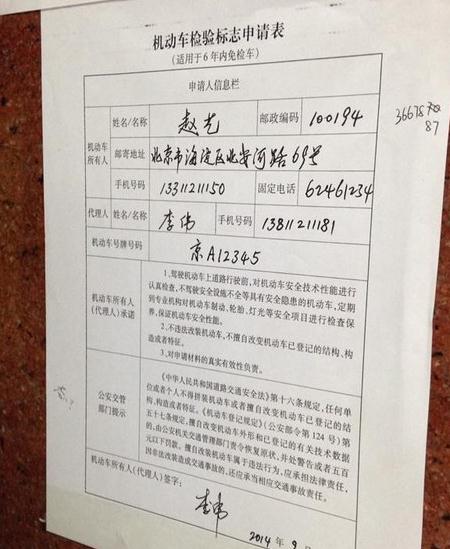 机动车检验标志申请表
(适用于6年内免检车)
申请人信息栏
机动车所有人 姓名/名称 赵艺 邮政编码 100194
邮寄地址 北京市海淀区北安河路69号
手机号码 13311211150 固定电话 62461234
代理人 姓名/名称 李伟 手机号码 13811211181
机动车号牌号码 京A12345
机动车所有人(代理人)承诺
1.驾驶机动车上道路行驶前,对机动车安全技术性能进行
认真检查,不驾驶安全设施不全等具有安全隐患的机动车,定期
到专业机构对机动车制动、轮胎、灯光等安全项目进行检查保
养,保证机动车安全性能。
2.不违法改装机动车,不擅自改变机动车已登记的结构、构
造或者特征。
3.对申请材料的真实有效性负责。
公安交管部门提示
《中华人民共和国道路交通安全法》第十六条规定,任何单
位或者个人不得拼装机动车或者擅自改变机动车已登记的结
构、构造或者特征。《机动车登记规定》(公安部令第124号)第
五十七条规定,擅自改变机动车外形和已登记的有关技术数据
的,由公安机关交通管理部门责令恢复原状,并处警告或者五百
元以下罚款。擅自改装机动车属于违法行为,应承担法律责任,
因非法改装造成交通事故的,还应当相应交通事故责任。
机动车所有人(代理人)签字:
李伟
2014年9月
36678
87